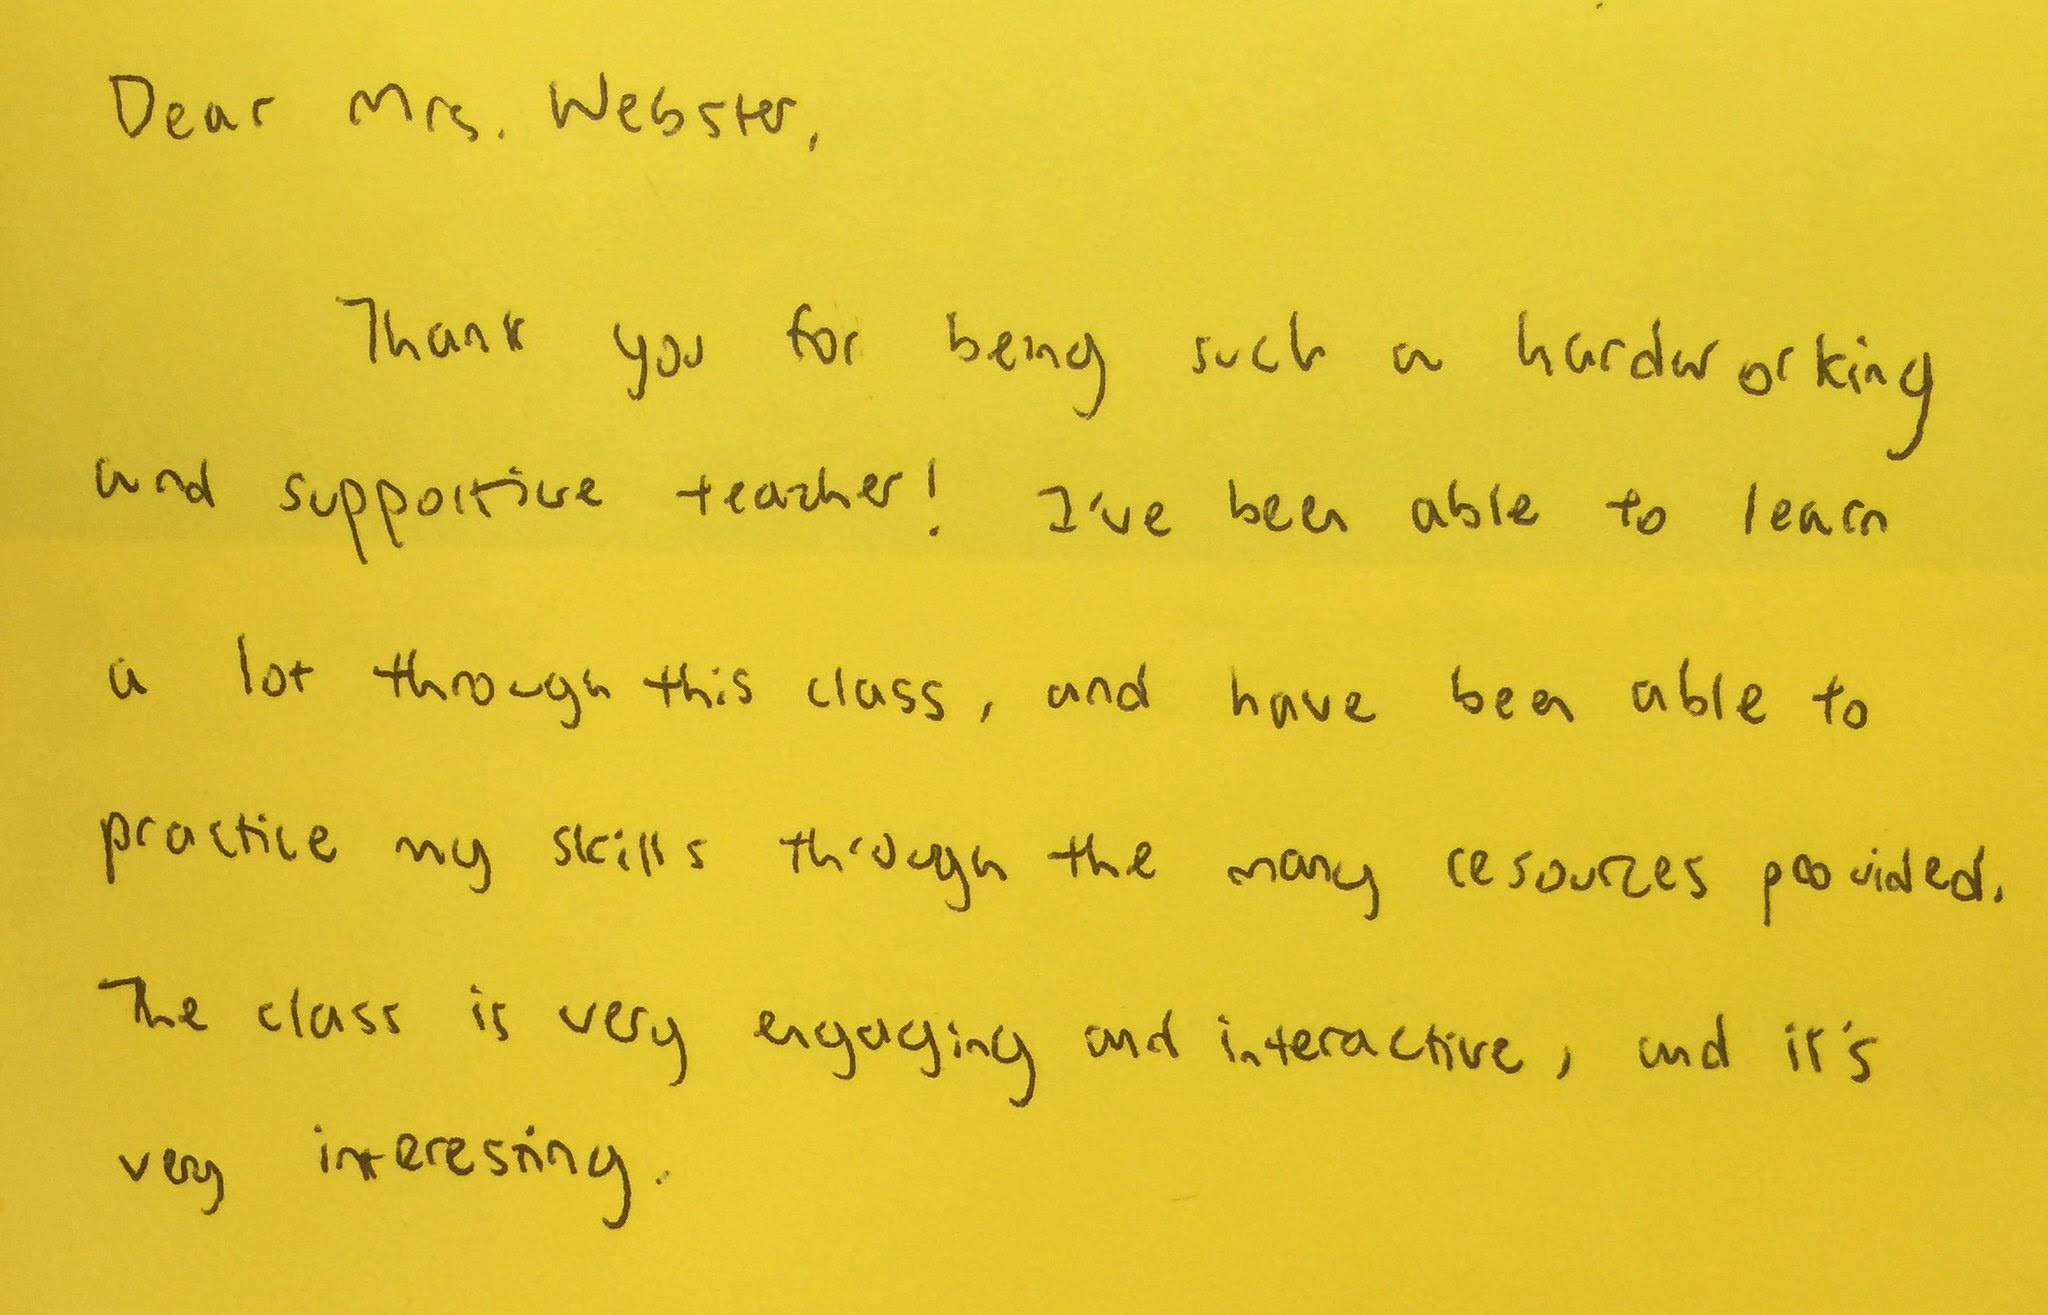 Dear Mrs. Webster,
Thank you for being such a hardworking
and supportive teacher! I've been able to learn
a lot through this class, and have been able to
practice my skills through the many resources provided.
The class is very engaging and interactive, and it's
very interesting.